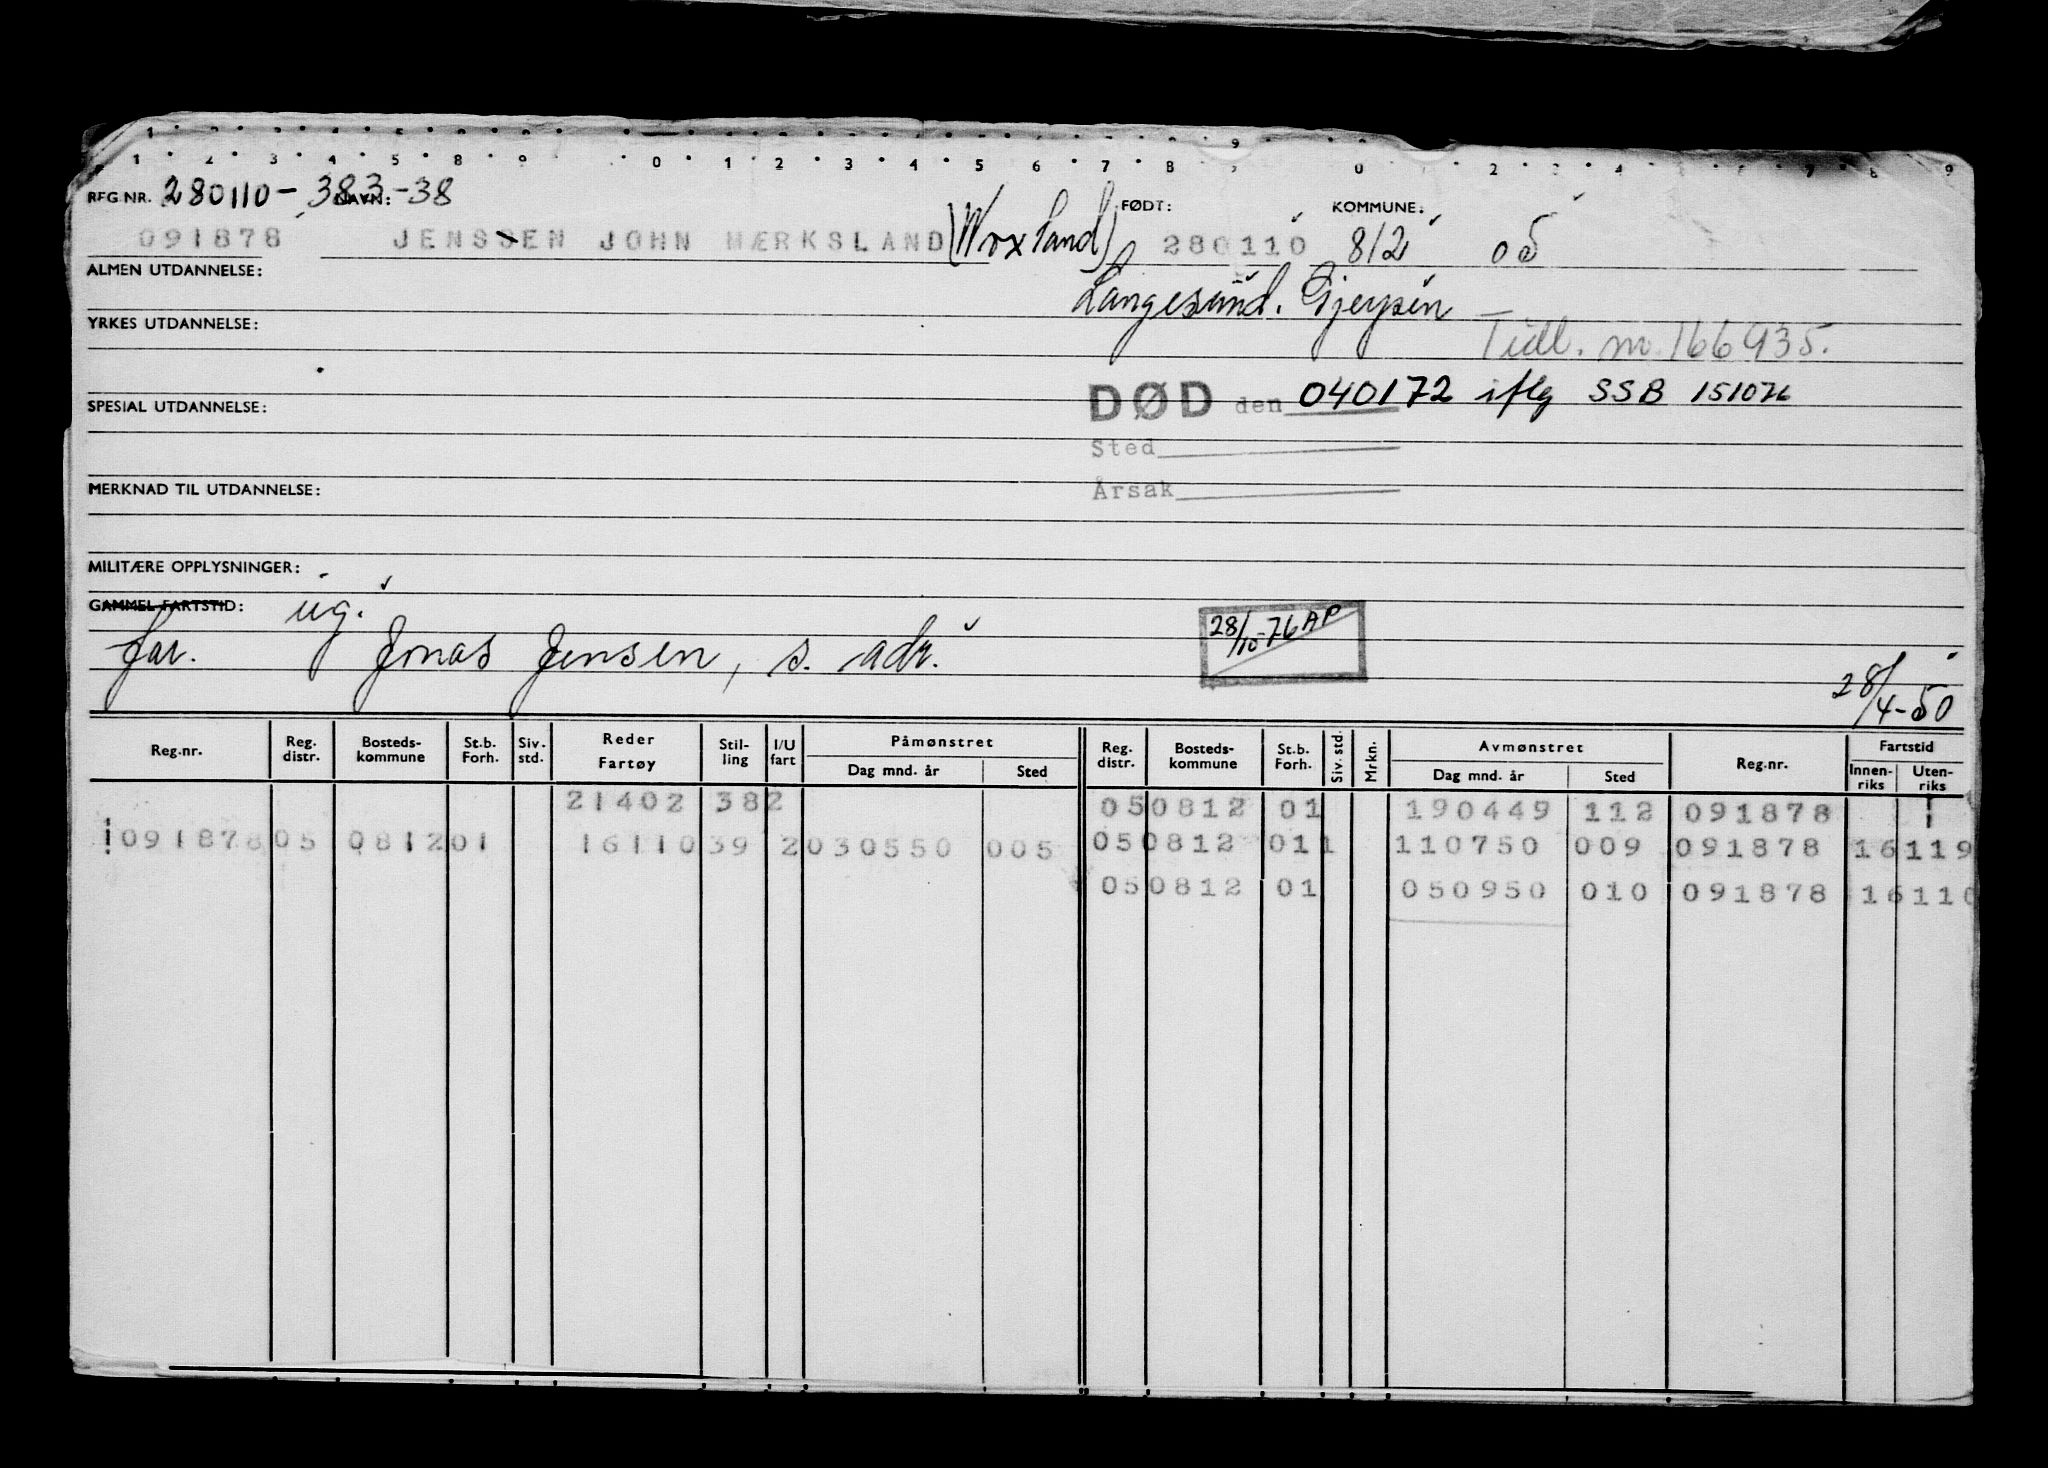 1 2 3 4 5 8 9 0 1 2 3 4 5 6 7 8 9 0 1 2 3 4 7 8 9
REG.NR. 280110-383-38 NAVN: FØDT: KOMMUNE:
091878 JENSSEN JOHN MÆRKSLAND (Woxland) 280110 812 05
ALMEN UTDANNELSE:
Langesund. Gjerpen
YRKES UTDANNELSE:
Tidl. nr. 166935.
DØD den 040172 iflg SSB 151076
SPESIAL UTDANNELSE:
Sted
MERKNAD TIL UTDANNELSE:
Årsak
MILITÆRE OPPLYSNINGER:
GAMMEL FARTSTID: ug.
far. Jonas Jensen, s. adr.
28/10-76 AP
28/4-50
Reg.nr. Reg. distr. Bosteds-kommune St.b. Forh. Siv. std. Reder Fartøy Stil-ling I/U fart Påmønstret Dag mnd. år Sted Reg. distr. Bosteds-kommune St.b. Forh. Siv. std. Mrkn. Avmønstret Dag mnd. år Sted Reg.nr. Fartstid Innen-riks Uten-riks
21402 382 050812 01 190449 112 091878
091878 05 0812 01 16110 39 2 030550 005 050812 011 110750 009 091878 16119
050812 01 050950 010 091878 16110